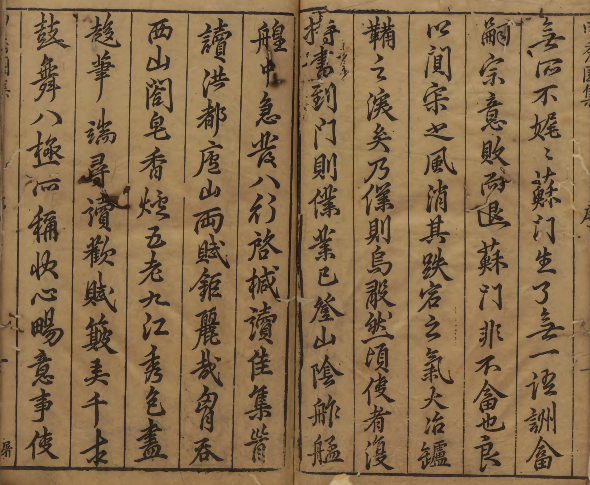 無所不娓〻蘇门生了無一语詶畣
嗣宗意敗而退蘇門非不畣也良
以阮宗之風消其跌宕之氣大冶鑪
鞴之淚矣乃僕則烏敢然頃使者復
持書到门則僕業已登山陰舴艋
艎中急發八行啓椷讀佳集皆
讀洪都廬山両賦鉅麗哉胷吞
西山閤皂香爐五老九江秀色盡
趍筆端尋讀歎賦簸弄千古
鼓舞八極所稱快心暢意事使